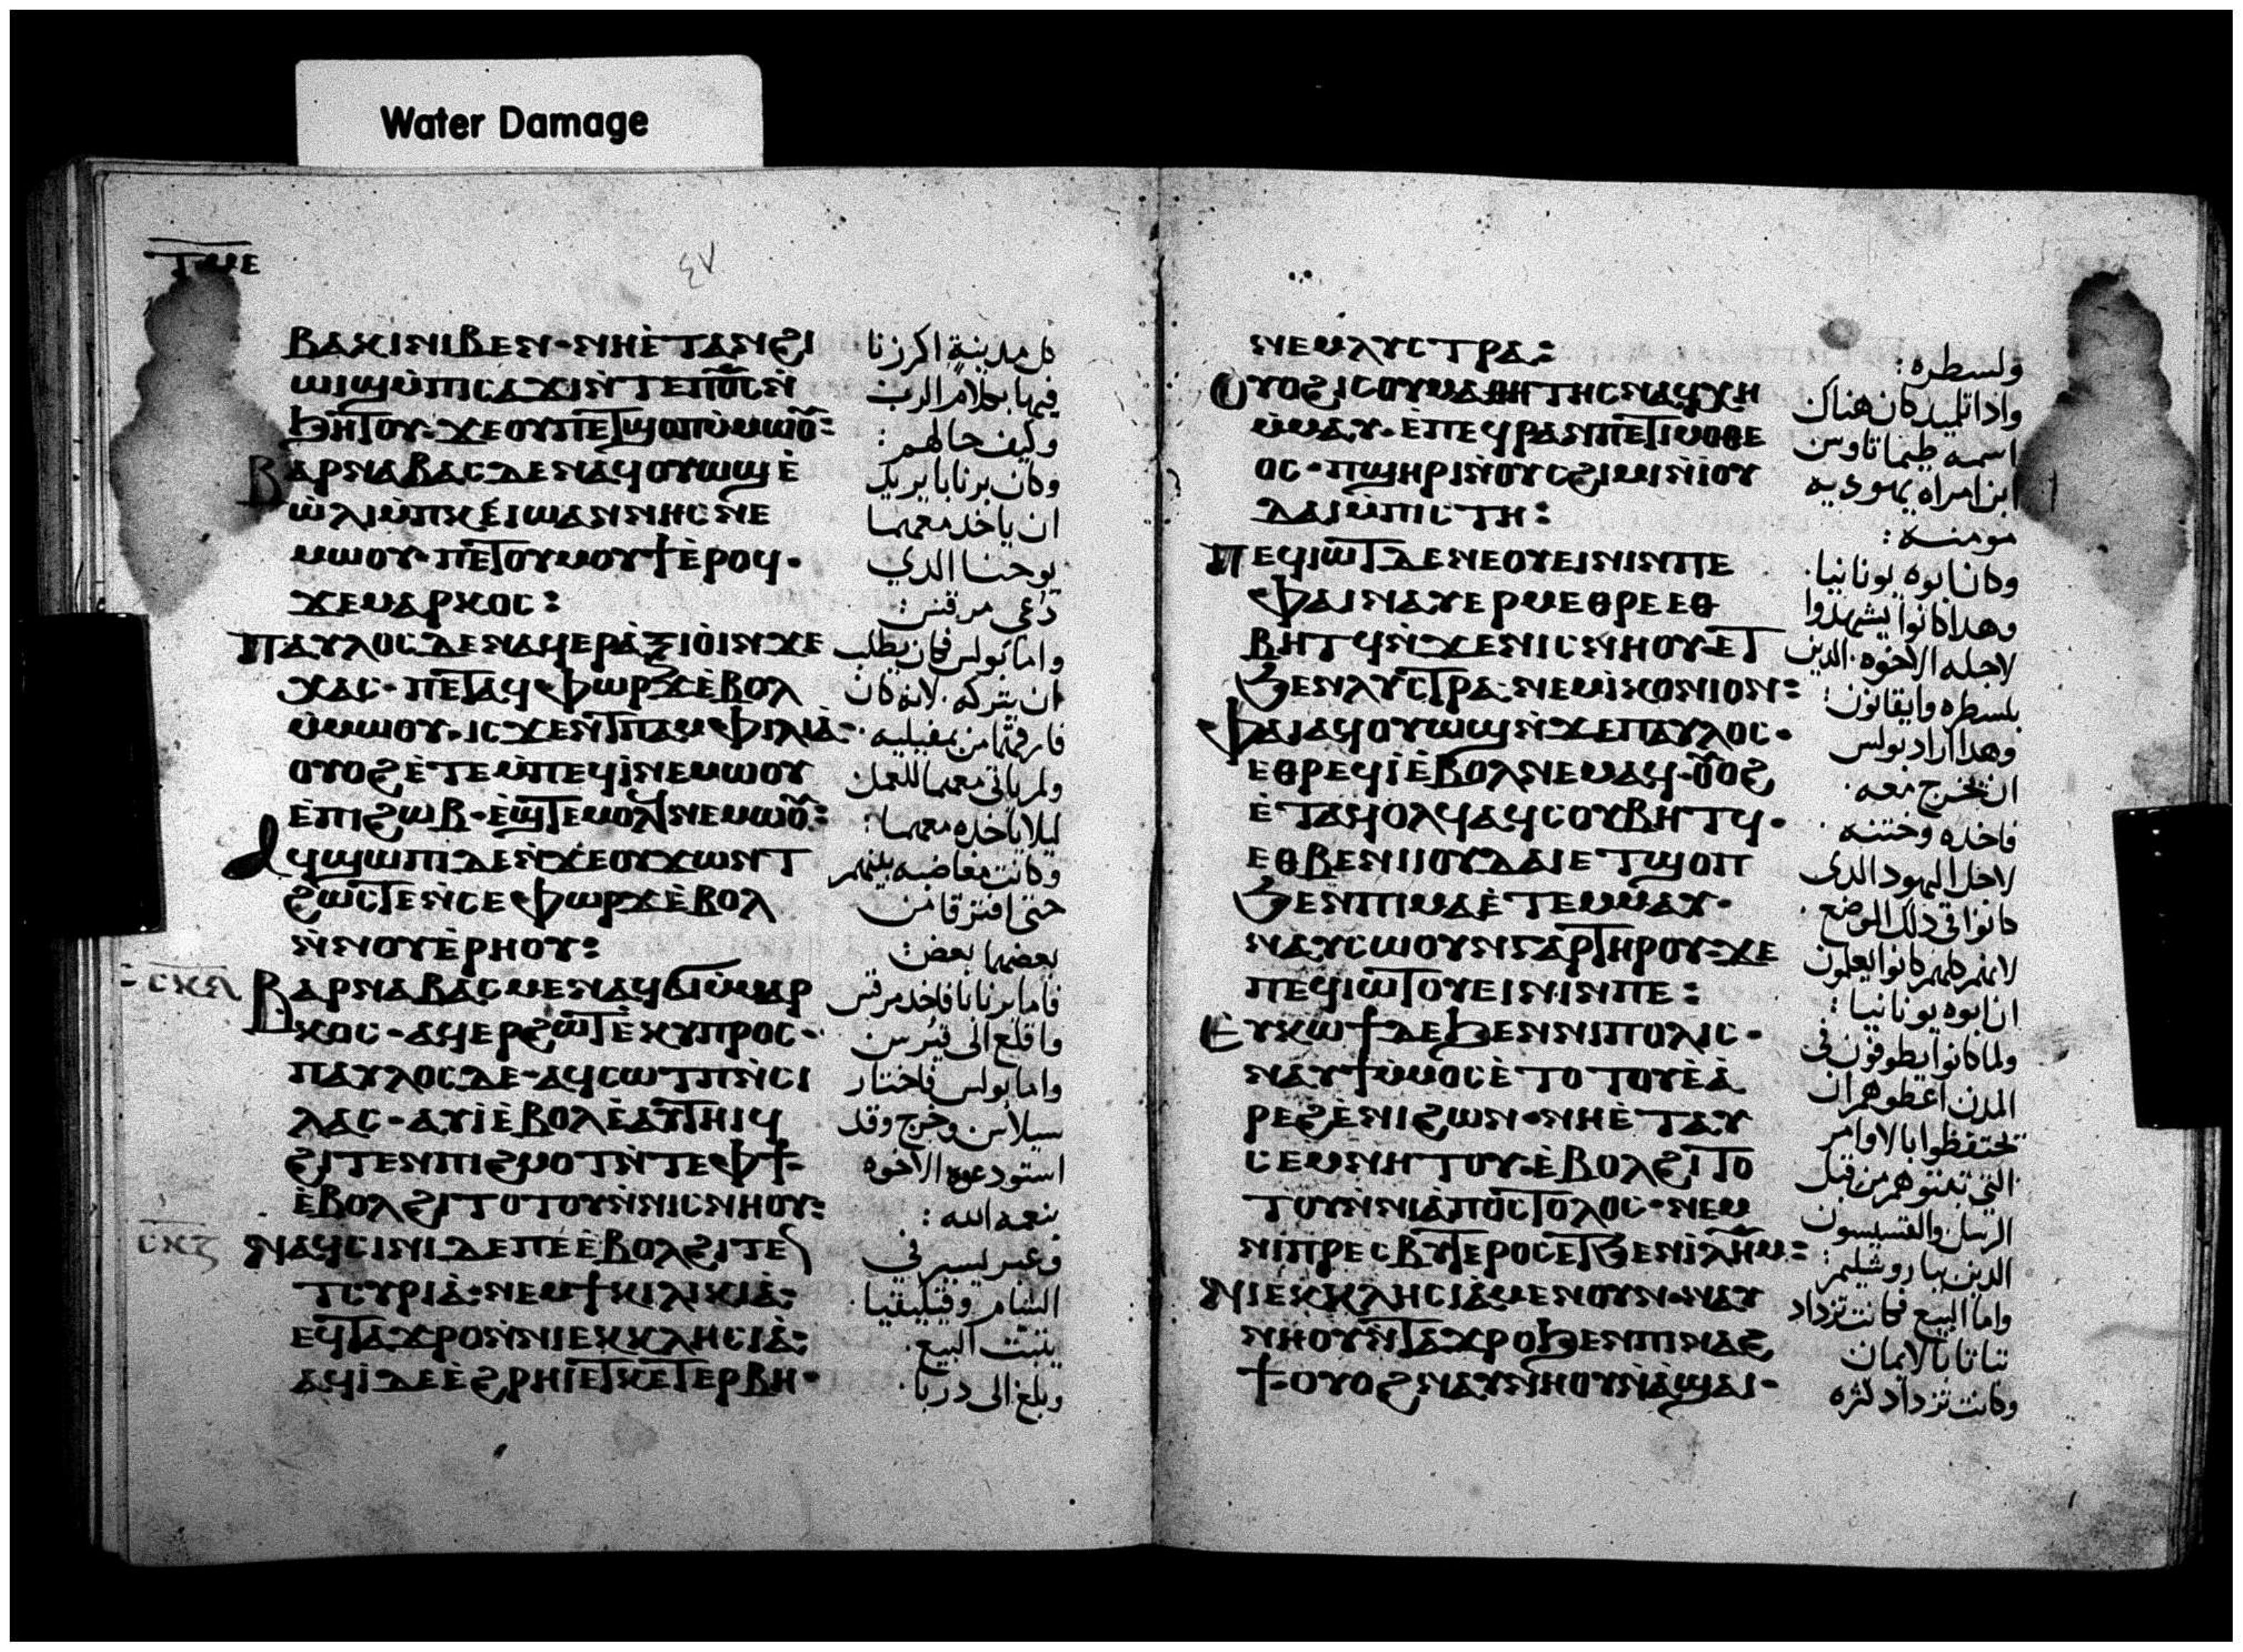 Water Damage
ⲧⲙⲉ
٤٧
ⲃⲁⲕⲓⲛⲓⲃⲉⲛ·ⲛⲏⲉ̀ⲧⲁⲛϩⲓ
ⲱⲓϣⲙ̀ⲡⲓⲥⲁϫⲓⲛ̀ⲧⲉⲡⲟ̅ⲥ̅ⲛ̀
ϧⲏⲧⲟⲩ·ϫⲉⲟⲩⲡⲉⲧϣⲟⲡⲙ̀ⲙⲱⲟⲩ:
ⲃⲁⲣⲛⲁⲃⲁⲥⲇⲉⲛⲁϥⲟⲩⲱϣⲉ̀
ⲱ̀ⲗⲓⲙ̀ⲡⲕⲉⲓⲱⲁⲛⲛⲏⲥⲛⲉ
ⲙⲱⲟⲩ·ⲡⲉⲧⲟⲩⲙⲟⲩϯⲉ̀ⲣⲟϥ·
ϫⲉⲙⲁⲣⲕⲟⲥ:
ⲡⲁⲩⲗⲟⲥⲇⲉⲛⲁϥⲉⲣⲁ̀ⲝⲓⲟⲓⲛ̀ⲭⲉ
ⲭⲁⲥ·ⲡⲉⲧⲁϥⲫⲱⲣϫⲉ̀ⲃⲟⲗ
ⲙ̀ⲙⲱⲟⲩ·ⲓⲥϫⲉⲛⲧⲡⲁⲙⲫⲓⲗⲓⲁ̀·
ⲟⲩⲟϩⲉ̀ⲧⲉⲙ̀ⲡⲉϥⲓ̀ⲛⲉⲙⲱⲟⲩ
ⲉ̀ⲡⲓϩⲱⲃ·ⲉ̀ϣⲧⲉⲙⲟⲗϥⲛⲉⲙⲱⲟⲩ:
ⲁϥϣⲱⲡⲓⲇⲉⲛ̀ϫⲉⲟⲩϫⲱⲛⲧ
ϩⲱⲥⲧⲉⲛ̀ⲥⲉⲫⲱⲣϫⲉ̀ⲃⲟⲗ
ⲛ̀ⲛⲟⲩⲉ̀ⲣⲏⲟⲩ:
ⲃⲁⲣⲛⲁⲃⲁⲥⲙⲉⲛⲁϥϭⲓⲙ̀ⲙⲁⲣ
ⲕⲟⲥ·ⲁϥⲉⲣϩⲱⲧⲉ̀ⲕⲩⲡⲣⲟⲥ·
ⲡⲁⲩⲗⲟⲥⲇⲉ·ⲁϥⲥⲱⲧⲡⲛ̀ⲥⲓ
ⲗⲁⲥ·ⲁⲩⲓ̀ⲉ̀ⲃⲟⲗⲉ̀ⲁⲩⲧⲏⲓϥ
ϩⲓⲧⲉⲛⲡⲓϩⲙⲟⲧⲛ̀ⲧⲉⲫϯ·
ⲉ̀ⲃⲟⲗϩⲓⲧⲟⲧⲟⲩⲛ̀ⲛⲓⲥⲛⲏⲟⲩ:
ⲥⲕⲍ
ⲛⲁϥⲥⲓⲛⲓⲇⲉⲡⲉⲉ̀ⲃⲟⲗϩⲓⲧⲉ
ⲧⲥⲩⲣⲓⲁ̀·ⲛⲉⲙϯⲕⲓⲗⲓⲕⲓⲁ̀:
ⲉϥⲧⲁϫⲣⲟⲛ̀ⲛⲓⲉⲕⲕⲗⲏⲥⲓⲁ̀:
ⲁϥⲓ̀ⲇⲉⲉ̀ϩⲣⲏⲓⲉⲧⲕⲉⲧⲉⲣⲃⲏ·
كل مدينة اكرزنا
فيها بكلام الرب
وكيف حالهم:
وكان برنابا يريد
ان ياخد معهما
يوحنا الدي
دعى مرقس:
واما بولس فكان يطلب
ان يتركه. لانه كان
فارقهما من بمفيليه.
ولم ياتي معهما للعمل
ليلا ياخده معهما:
وكانت مغاضبه بينهم
حتى افترقا من
بعضهما بعض:
فاما برنابا فاخد مرقس
واقلع الى قبرس
واما بولس فاختار
سيلاس وخرج وقد
استودعوه الاخوه
بنعمه الله:
وعبر يسير في
الشام وقيليقيا.
يثبت البيع.
وبلغ الى دربا.
ⲛⲉⲙⲗⲩⲥⲧⲣⲁ:
ⲟⲩⲟϩⲓⲥⲟⲩⲙⲁⲑⲏⲧⲏⲥⲛⲁϥⲭⲏ
ⲙ̀ⲙⲁⲩ·ⲉ̀ⲡⲉϥⲣⲁⲛⲡⲉⲧⲓⲙⲟⲑⲉ
ⲟⲥ·ⲡϣⲏⲣⲓⲛ̀ⲟⲩⲥϩⲓⲙⲓⲛ̀ⲓⲟⲩ
ⲇⲁⲓⲙ̀ⲡⲓⲥⲧⲏ:
ⲡⲉϥⲓⲱⲧⲇⲉⲛⲉⲟⲩⲉⲓⲛⲓⲛⲡⲉ
ⲫⲁⲓⲛⲁⲩⲉⲣⲙⲉⲑⲣⲉⲉⲑ
ⲃⲏⲧϥⲛ̀ϫⲉⲛⲓⲥⲛⲏⲟⲩ·ⲉⲧ
ϧⲉⲛⲗⲩⲥⲧⲣⲁ·ⲛⲉⲙⲓ̀ⲕⲟⲛⲓⲟⲛ:
ⲫⲁⲓⲁϥⲟⲩⲱϣⲛ̀ϫⲉⲡⲁⲩⲗⲟⲥ·
ⲉⲑⲣⲉϥⲓ̀ⲉ̀ⲃⲟⲗⲛⲉⲙⲁϥ·ⲟⲩⲟϩ
ⲉ̀ⲧⲁϥⲟⲗϥⲁϥⲥⲟⲩⲃⲏⲧϥ·
ⲉⲑⲃⲉⲛⲓⲓⲟⲩⲇⲁⲓⲉⲧϣⲟⲡ
ϧⲉⲛⲡⲓⲙⲁⲉ̀ⲧⲉⲙⲙⲁⲩ·
ⲛⲁⲩⲥⲱⲟⲩⲛⲅⲁⲣⲧⲏⲣⲟⲩ·ϫⲉ
ⲡⲉϥⲓⲱⲧⲟⲩⲉⲓⲛⲓⲛⲡⲉ:
ⲉⲩⲕⲱϯⲇⲉϧⲉⲛⲛⲓⲡⲟⲗⲓⲥ·
ⲛⲁⲩϯⲙ̀ⲙⲟⲥⲉ̀ⲧⲟⲧⲟⲩⲉ̀ⲁ̀
ⲣⲉϩⲉ̀ⲛⲓϩⲱⲛ·ⲛⲏⲉ̀ⲧⲁⲩ
ⲥⲉⲙⲛⲏⲧⲟⲩ·ⲉ̀ⲃⲟⲗϩⲓⲧⲟ
ⲧⲟⲩⲛ̀ⲛⲓⲁ̀ⲡⲟⲥⲧⲟⲗⲟⲥ·ⲛⲉⲙ
ⲛⲓⲡⲣⲉⲥⲃⲩⲧⲉⲣⲟⲥⲉⲧϧⲉⲛⲓ̀ⲗⲏⲙ:
ⲛⲓⲉⲕⲕⲗⲏⲥⲓⲁ̀ⲙⲉⲛⲟⲩⲛ·ⲛⲁⲩ
ⲛⲏⲟⲩⲛ̀ⲧⲁϫⲣⲟϧⲉⲛⲡⲓⲛⲁϩ
ϯ·ⲟⲩⲟϩⲛⲁⲩⲛⲏⲟⲩⲛ̀ⲁ̀ϣⲁⲓ·
ولسطره:
وادا تلميد كان هناك
اسمه طيماتاوس
ابن امراه يهوديه
مومنه:
وكان ابوه يونانيا.
وهدا كانوا يشهدوا
لاجله الاخوه. الدين
بلسطره وايقانون:
وهدا اراد بولس
ان يخرج معه.
فاخده وختنه.
لاجل اليهود الدى
كانوا في دلك الموضع.
لانهم كلهم كانوا يعلمون
ان ابوه يونانيا:
ولما كانوا يطوفون في
المدن اعطوهم ان
يحتفظوا بالاوامر
التي من قبل
الرسل والقسيسون
الدين بياروشليم:
واما البيع فكانت تزداد
تباتا بالايمان
وكانت تزداد كثره